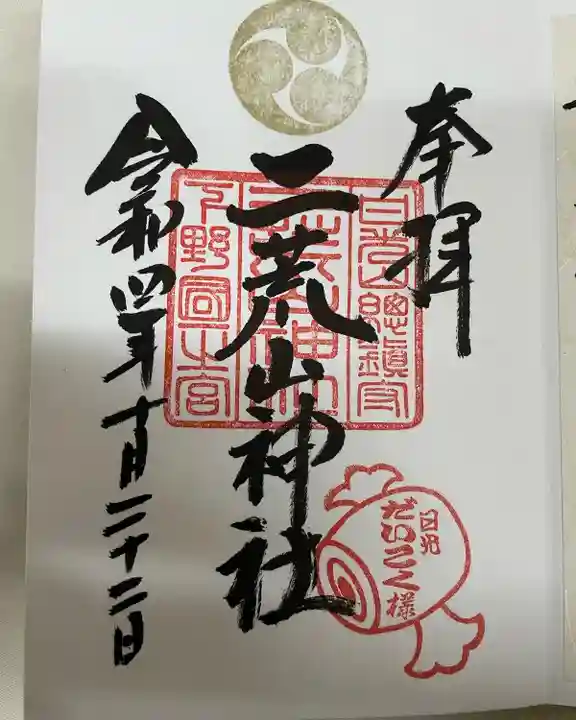 奉拝
日光山總鎮守
二荒山神社
二荒山神社
下野國一宮
令和四年十月二十二日
日光
だいこく様